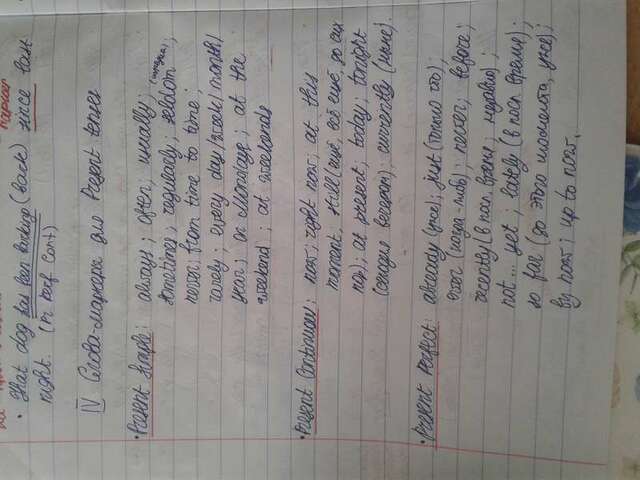 маркер
• That dog has been barking (bark) since last
night. (Pr Perf Cont)
IV Слова-маркеры для Present tenses
• Present Simple: always; often; usually;
sometimes; regularly; seldom (изредка);
never; from time to time;
rarely; every day/week/month/
year; on Mondays; at the
weekend; at weekends
• Present Continuous: now; right now; at this
moment, still (ещё, всё ещё, до сих
пор); at present; today; tonight
(сегодня вечером); currently (ныне).
• Present Perfect: already (уже); just (только что);
ever (когда-либо); never; before;
recently (в посл. время; недавно);
not... yet; lately (в посл. время);
so far (до этого момента, уже);
by now; up to now.